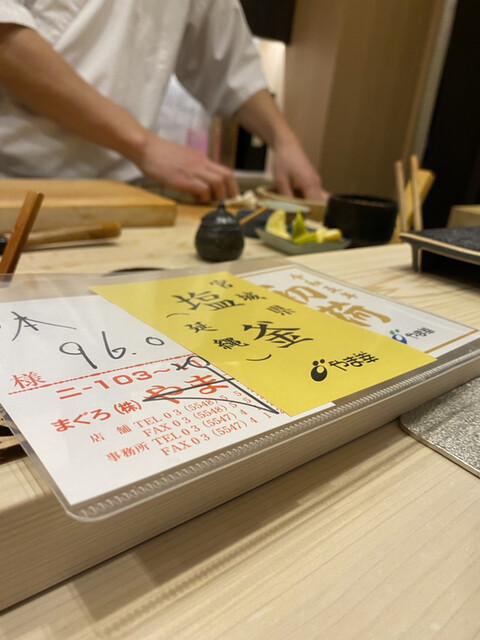 本
96.0
様
ニ-103~10
まぐろ(株)やま
店 舗 TEL 03 (5548)
FAX 03 (5548)
事務所 TEL 03 (5547) 4
FAX 03 (5547) 4
宮城県
塩釜
(延縄)
やま幸
初荷
やま幸